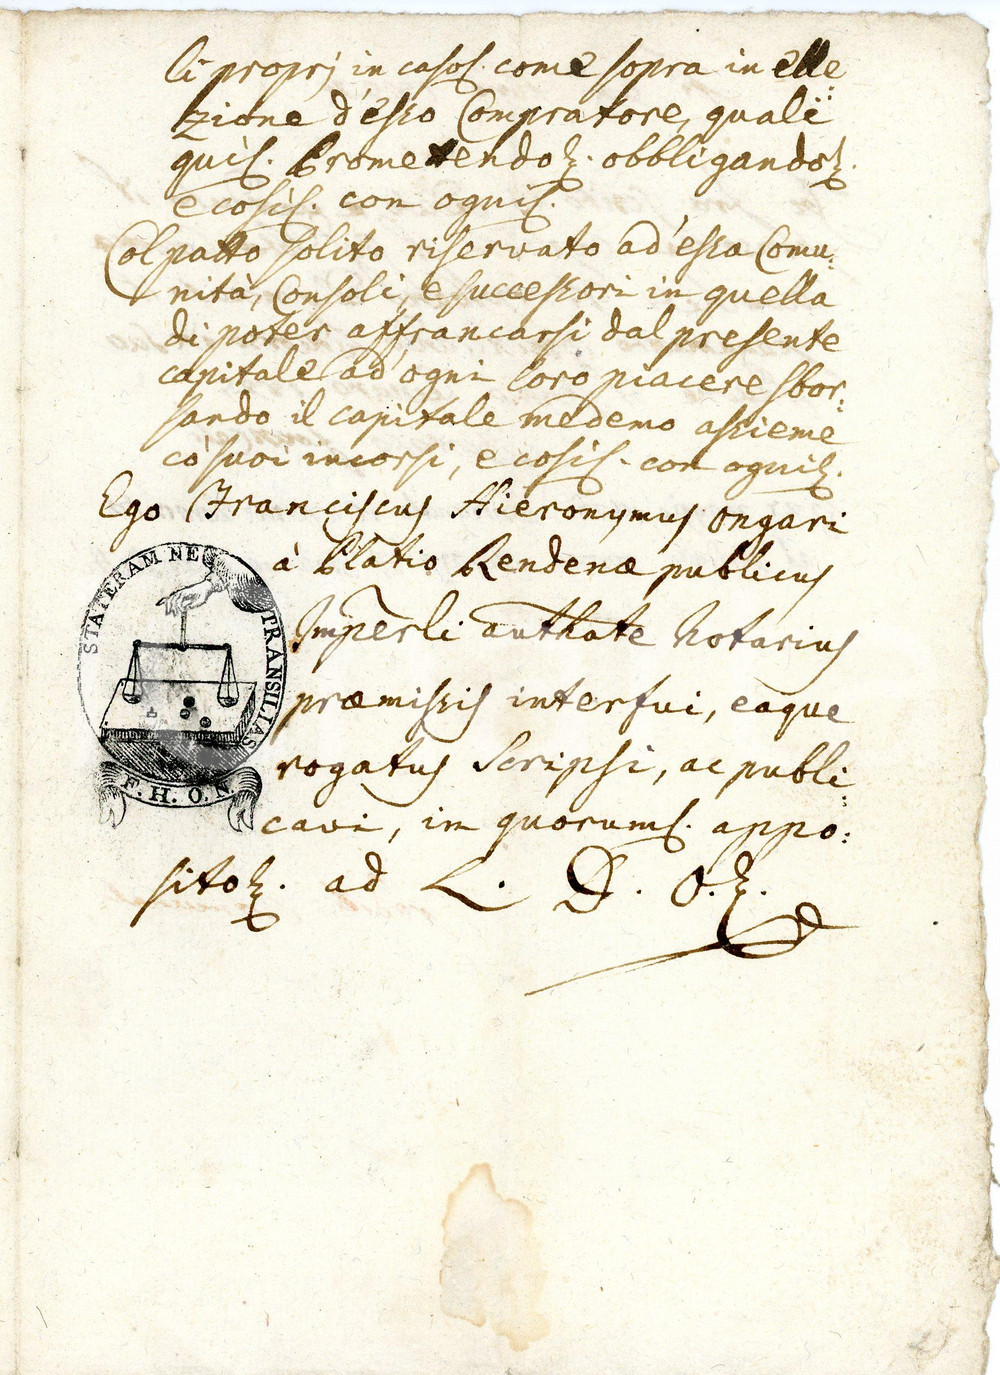 li proprj in casos. come sopra in elle
zione d'esso Compratore, quali
quis. Promettendoz. obbligandoz.
e cosis. con oguis.
Col patto solito riservato ad'essa Comu:
nità, Consoli, e successori in quella
di poter affrancarsi dal presente
capitale ad'ogni loro piacere sbor:
sando il capitale medemo assieme
co' suoi incorsi, e cosis. con oguiz.
Ego Franciscus Hieronymus Ongari
à Platio Rendenæ publicus
Imperli authate Notarius
præmissis interfui, eaque
rogatus Scripsi, ac publi:
cavi, in quorums. appo:
sitoz. ad L. D. O. z.
STATERAM NE TRANSILIAS
F. H. O. N.